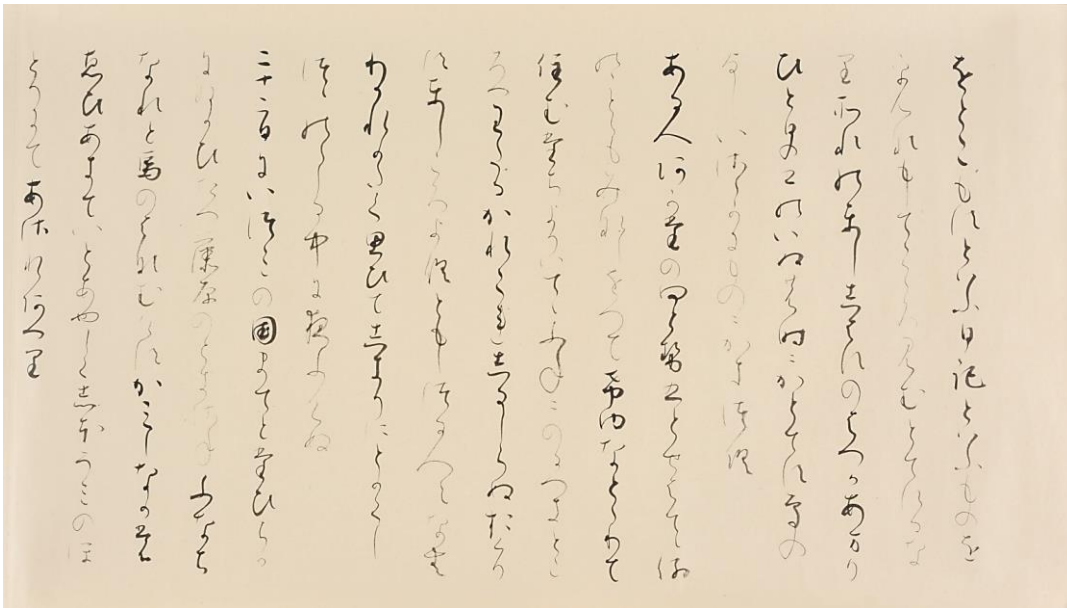 をとこもすといふ日記といふものを
をんなもしてこゝろみむとてするな
りそれのとしのしはすのはつかあまり
ひとひの日のいぬの時にかとてすその
よしいさゝかものにかきつく
ある人あかたのよとせ五とせはてゝ例
のことゝもみなしをへてけゆなとゝりて
住むたちよりいてゝふねにのるへきとこ
ろへわたるかれこれしるしらぬおくり
すとしころよくともしつる人〻なむ
わかれかたく思ひてしきりにとかくし
つゝのゝしる中に夜ふけぬ
二十二日にいつみの国まてとたひらか
にねかひたつ藤原のときさねふなち
なれと馬のはなむけすかみしなかも
ゑひあきていとあやしくしほうみのほ
とりにてあされあへり